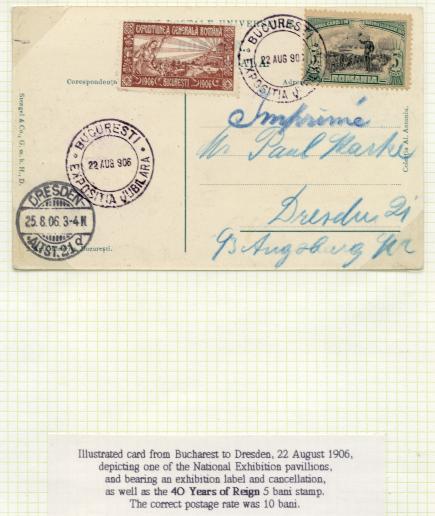 POSTALE UNIVER
BUCURESTI
22 AUG 906
EXPOSITIA JUBILARA
EXPOZITIUNEA GENERALA ROMÂNĂ
1906 BUCURESTI 1906
5 ROMANIA 5
Corespondența
Imprimé
Mr Paul
Dresden 21
BUCURESTI
22 AUG 906
EXPOSITIA JUBILARA
DRESDEN
25.8.06. 3-4 N
ALTST. 21
București.
Stengel & Co., G. m. b. H., D.
Illustrated card from Bucharest to Dresden, 22 August 1906,
depicting one of the National Exhibition pavillions,
and bearing an exhibition label and cancellation,
as well as the 40 Years of Reign 5 bani stamp.
The correct postage rate was 10 bani.